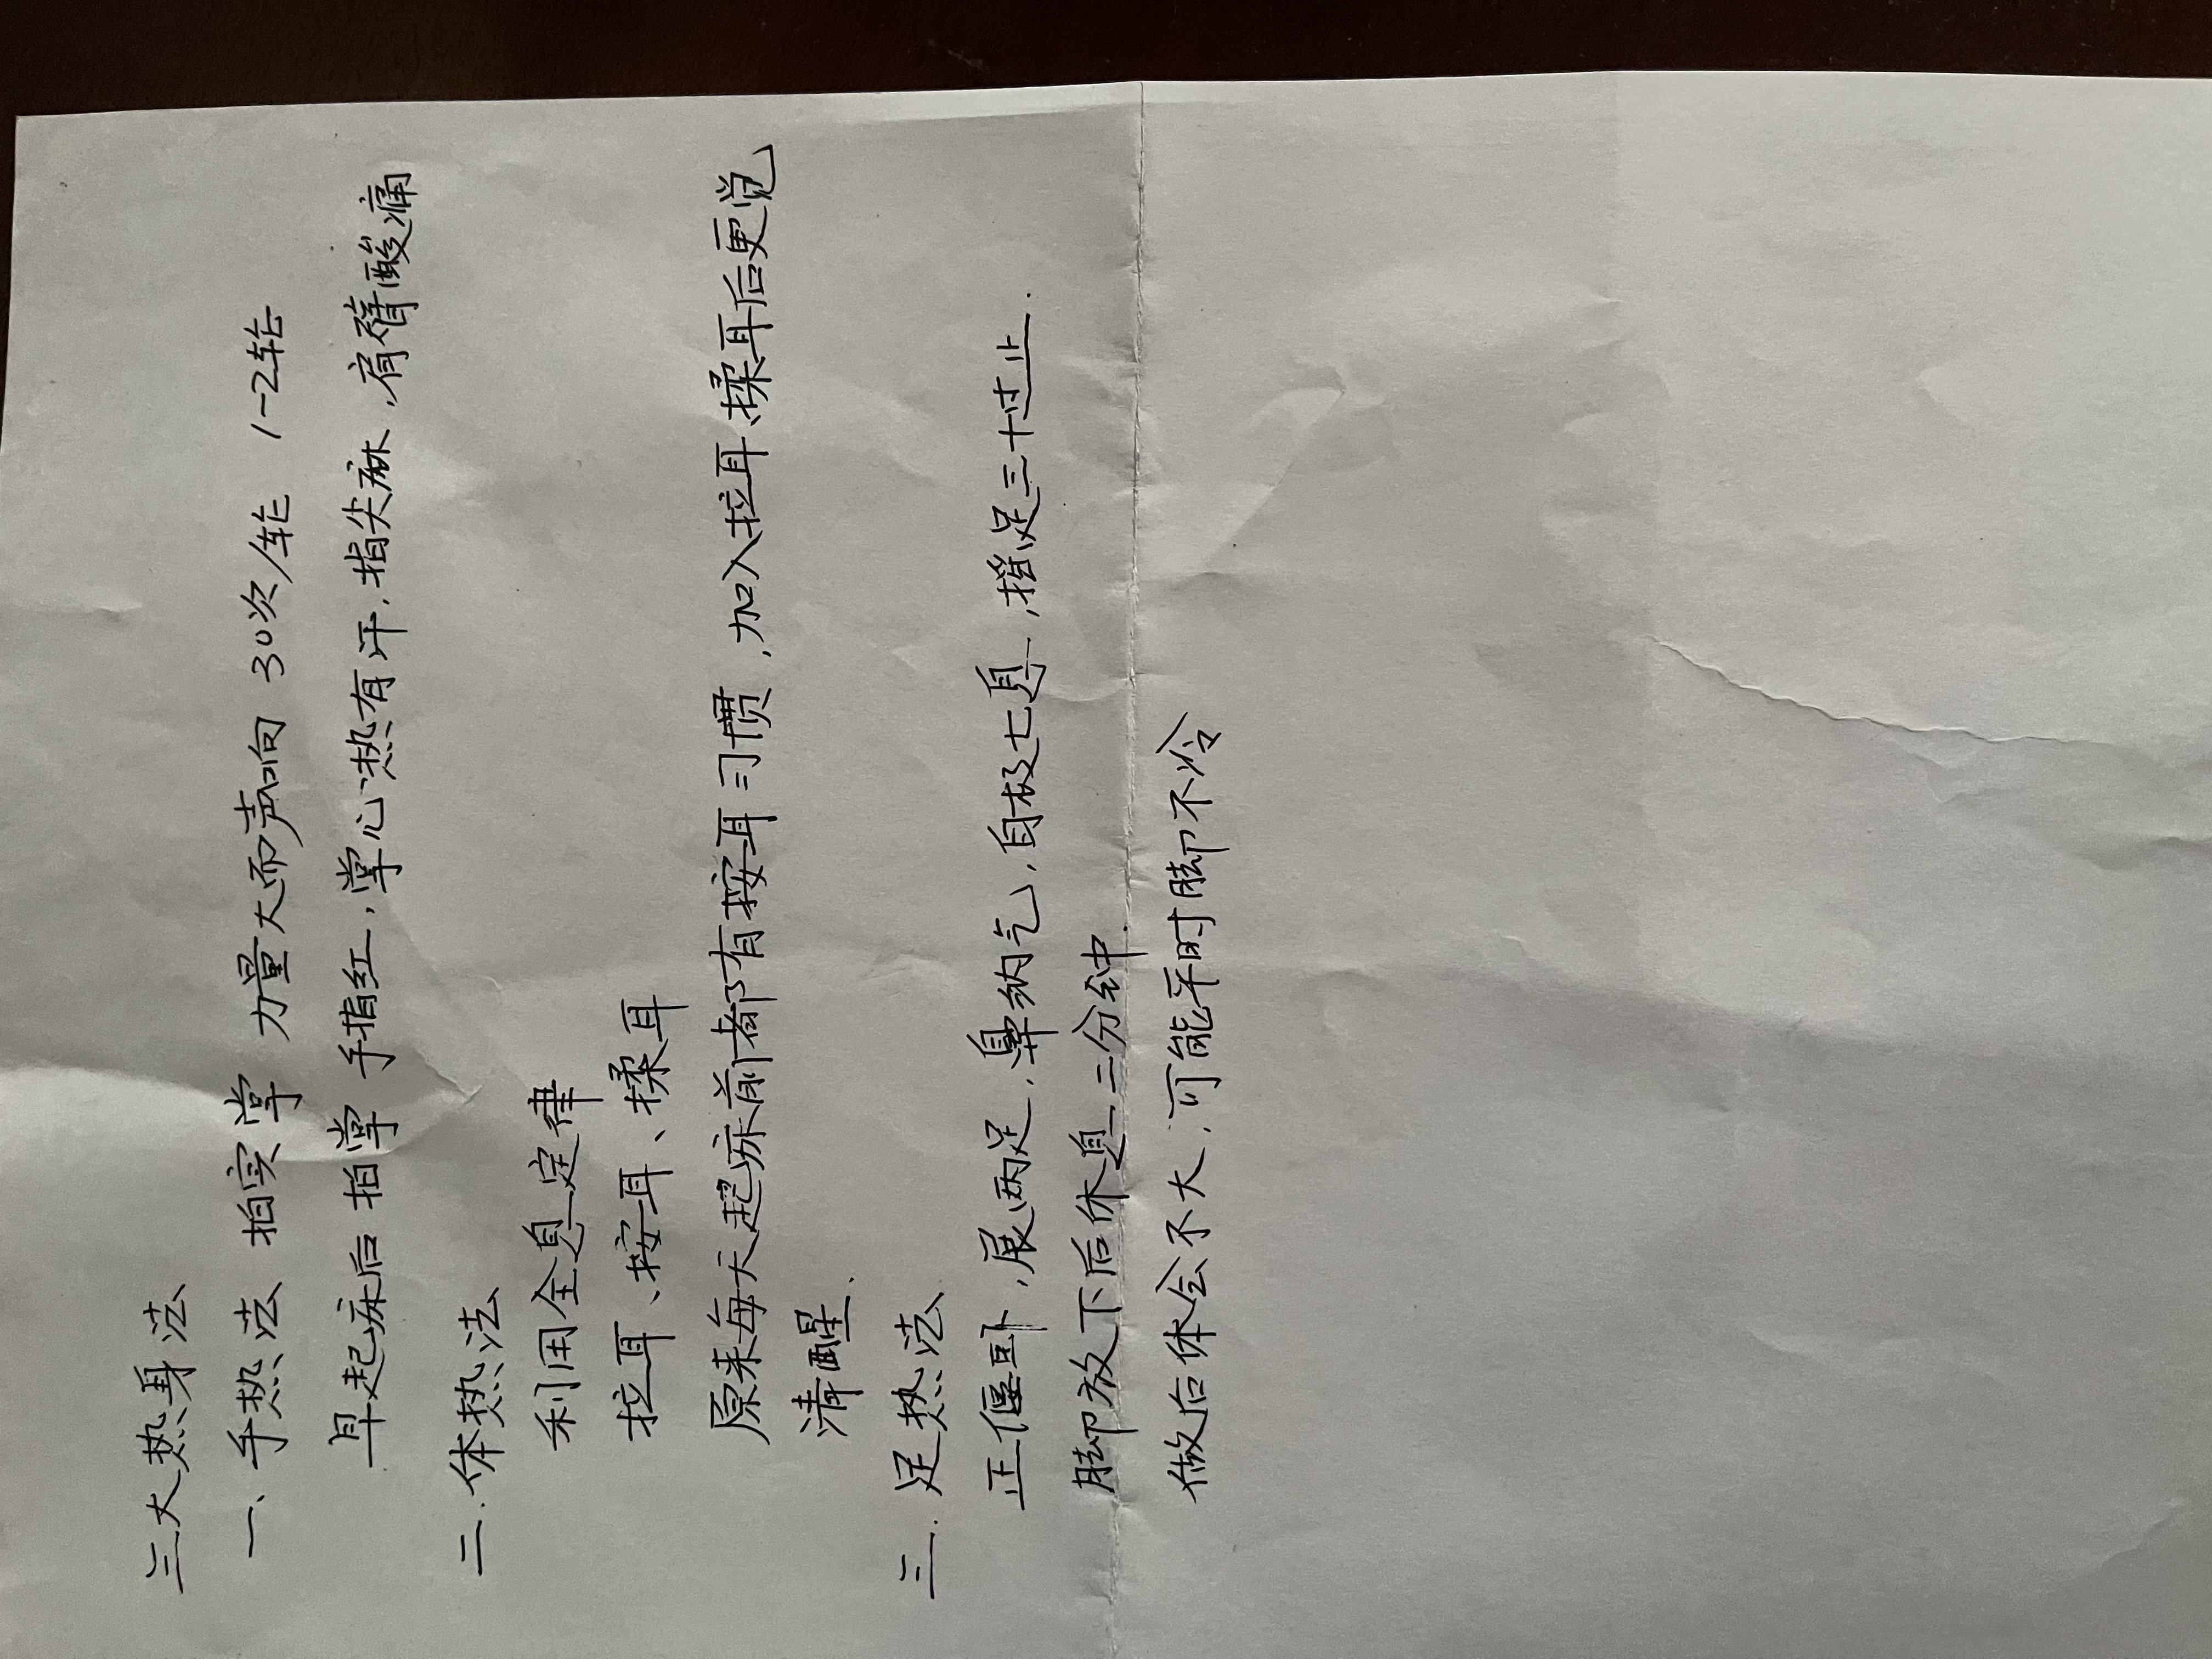 三大热身法
一、手热法 拍实掌 力量大而声向 30次/轮 1-2轮
早起床后 拍掌 手指红,掌心热有汗,指尖麻,肩臂酸痛
二.体热法
利用全息定律
拉耳、按耳、揉耳
原来每天起床前都有按耳习惯,加入拉耳、揉耳后更觉
清醒.
三.足热法
正偃卧,展两足,鼻纳气,自极七息,摇足三十过止.
脚放下后休息二分钟.
做后体会不大,可能平时脚不冷